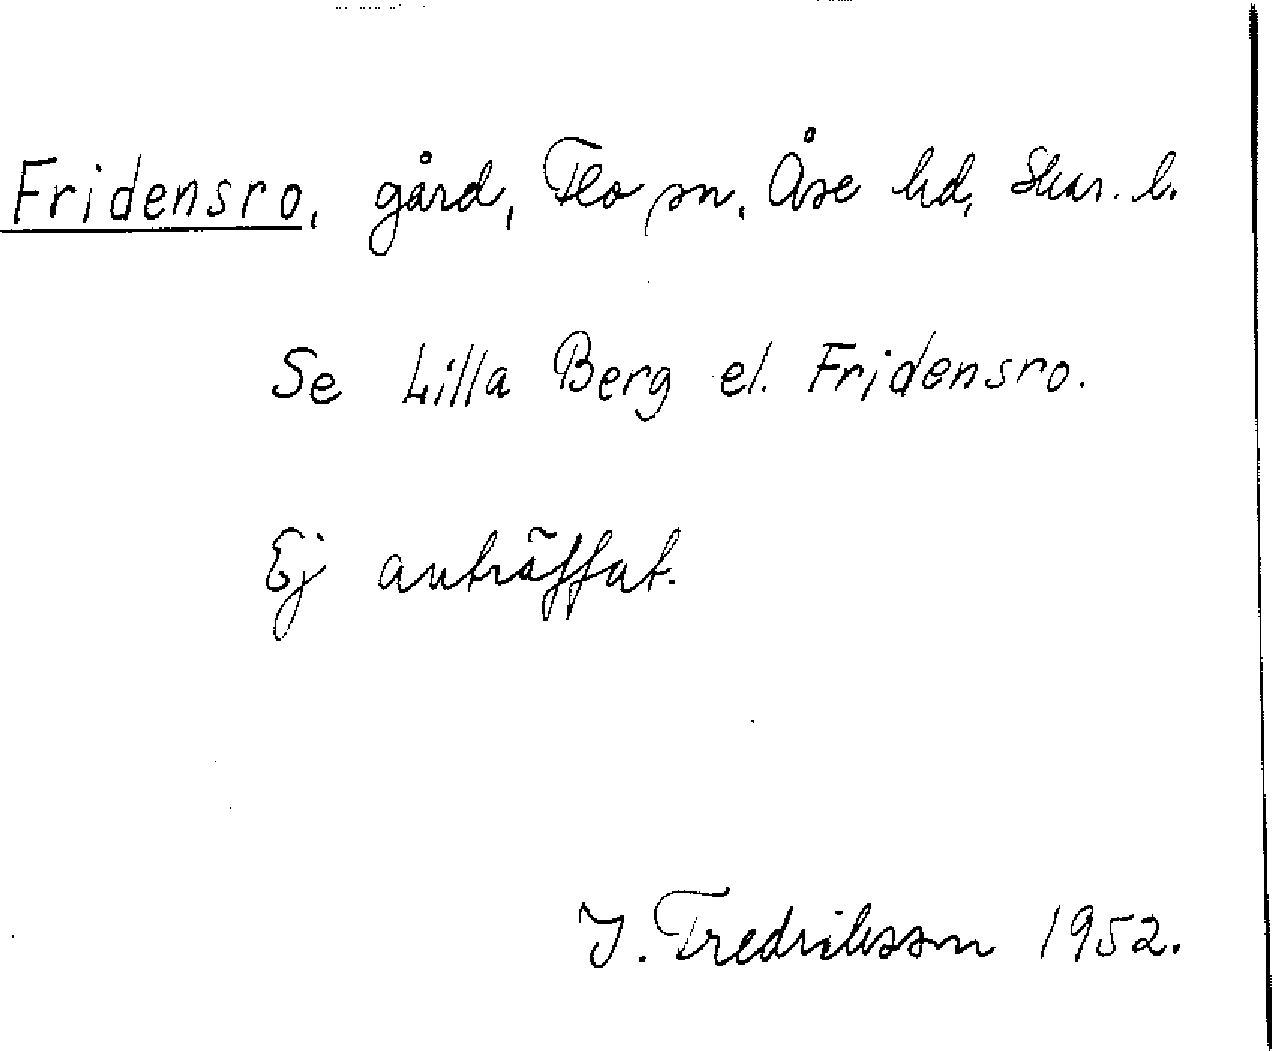 Fridensro, gård, Flo sn, Åse hd, Skar. l.
Se Lilla Berg el. Fridensro.
Ej anträffat.
I. Fredriksson 1952.